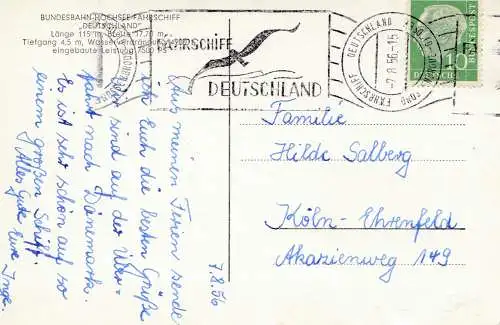 BUNDESBAHN-HOCHSEE-FÄHRSCHIFF
„DEUTSCHLAND"
Länge 115 m, Breite 17,70 m,
Tiefgang 4,5 m, Wasserverdrängung
eingebaute Leistung PS
FÄHRSCHIFF
DEUTSCHLAND
DEUTSCHLAND
FÄHRSCHIFF
-7.8.56-15
DEUTSCHE BUNDESPOST
10
Aus meinen Ferien sende
ich Euch die besten Grüße
Wir sind auf der Über-
fahrt nach Dänemark.
Es ist sehr schön auf so
einem großen Schiff.
Alles Gute Eure Inge.
7.8.56
Familie
Hilde Salberg
Köln-Ehrenfeld
Akazienweg 149